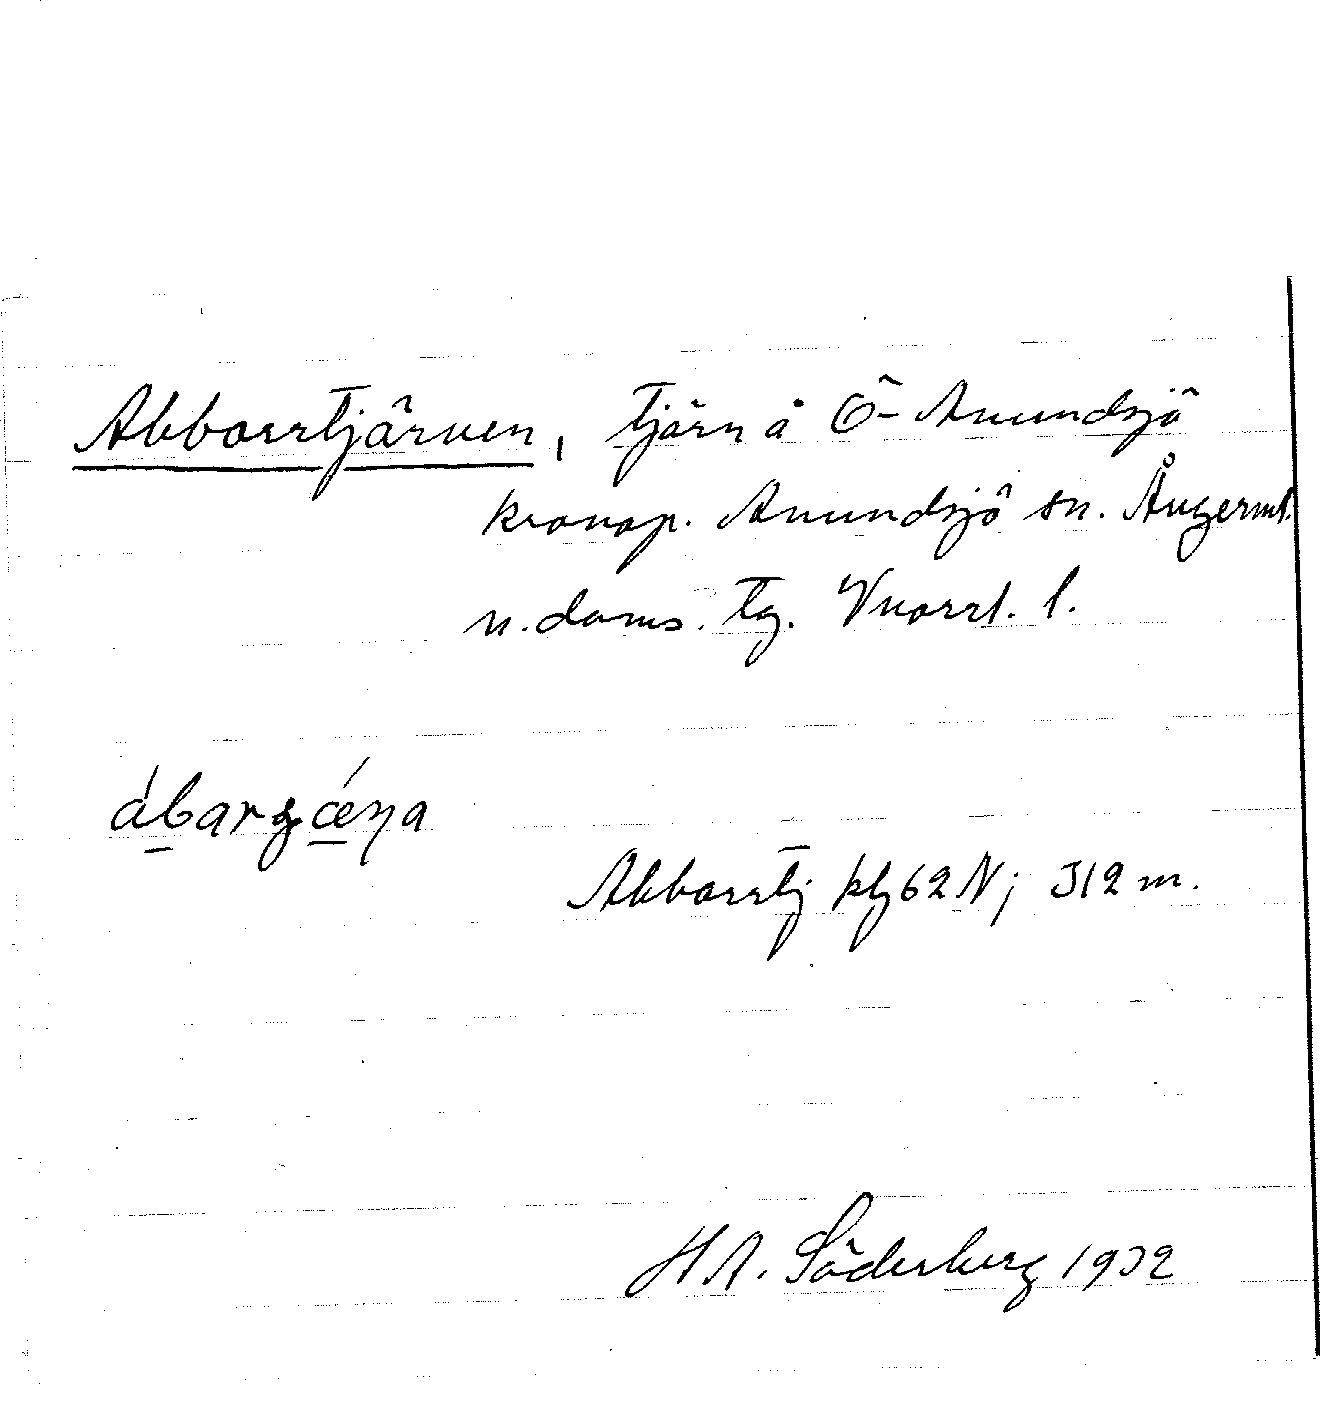 Abborrtjärnen, tjärn å Ö-Anundsjö
kronop. Anundsjö sn. Ångerml.
n. doms. tg. Vnorrl. l.
Abborrtj kbl 62 N; 312 m.
H A. Söderberg 1932